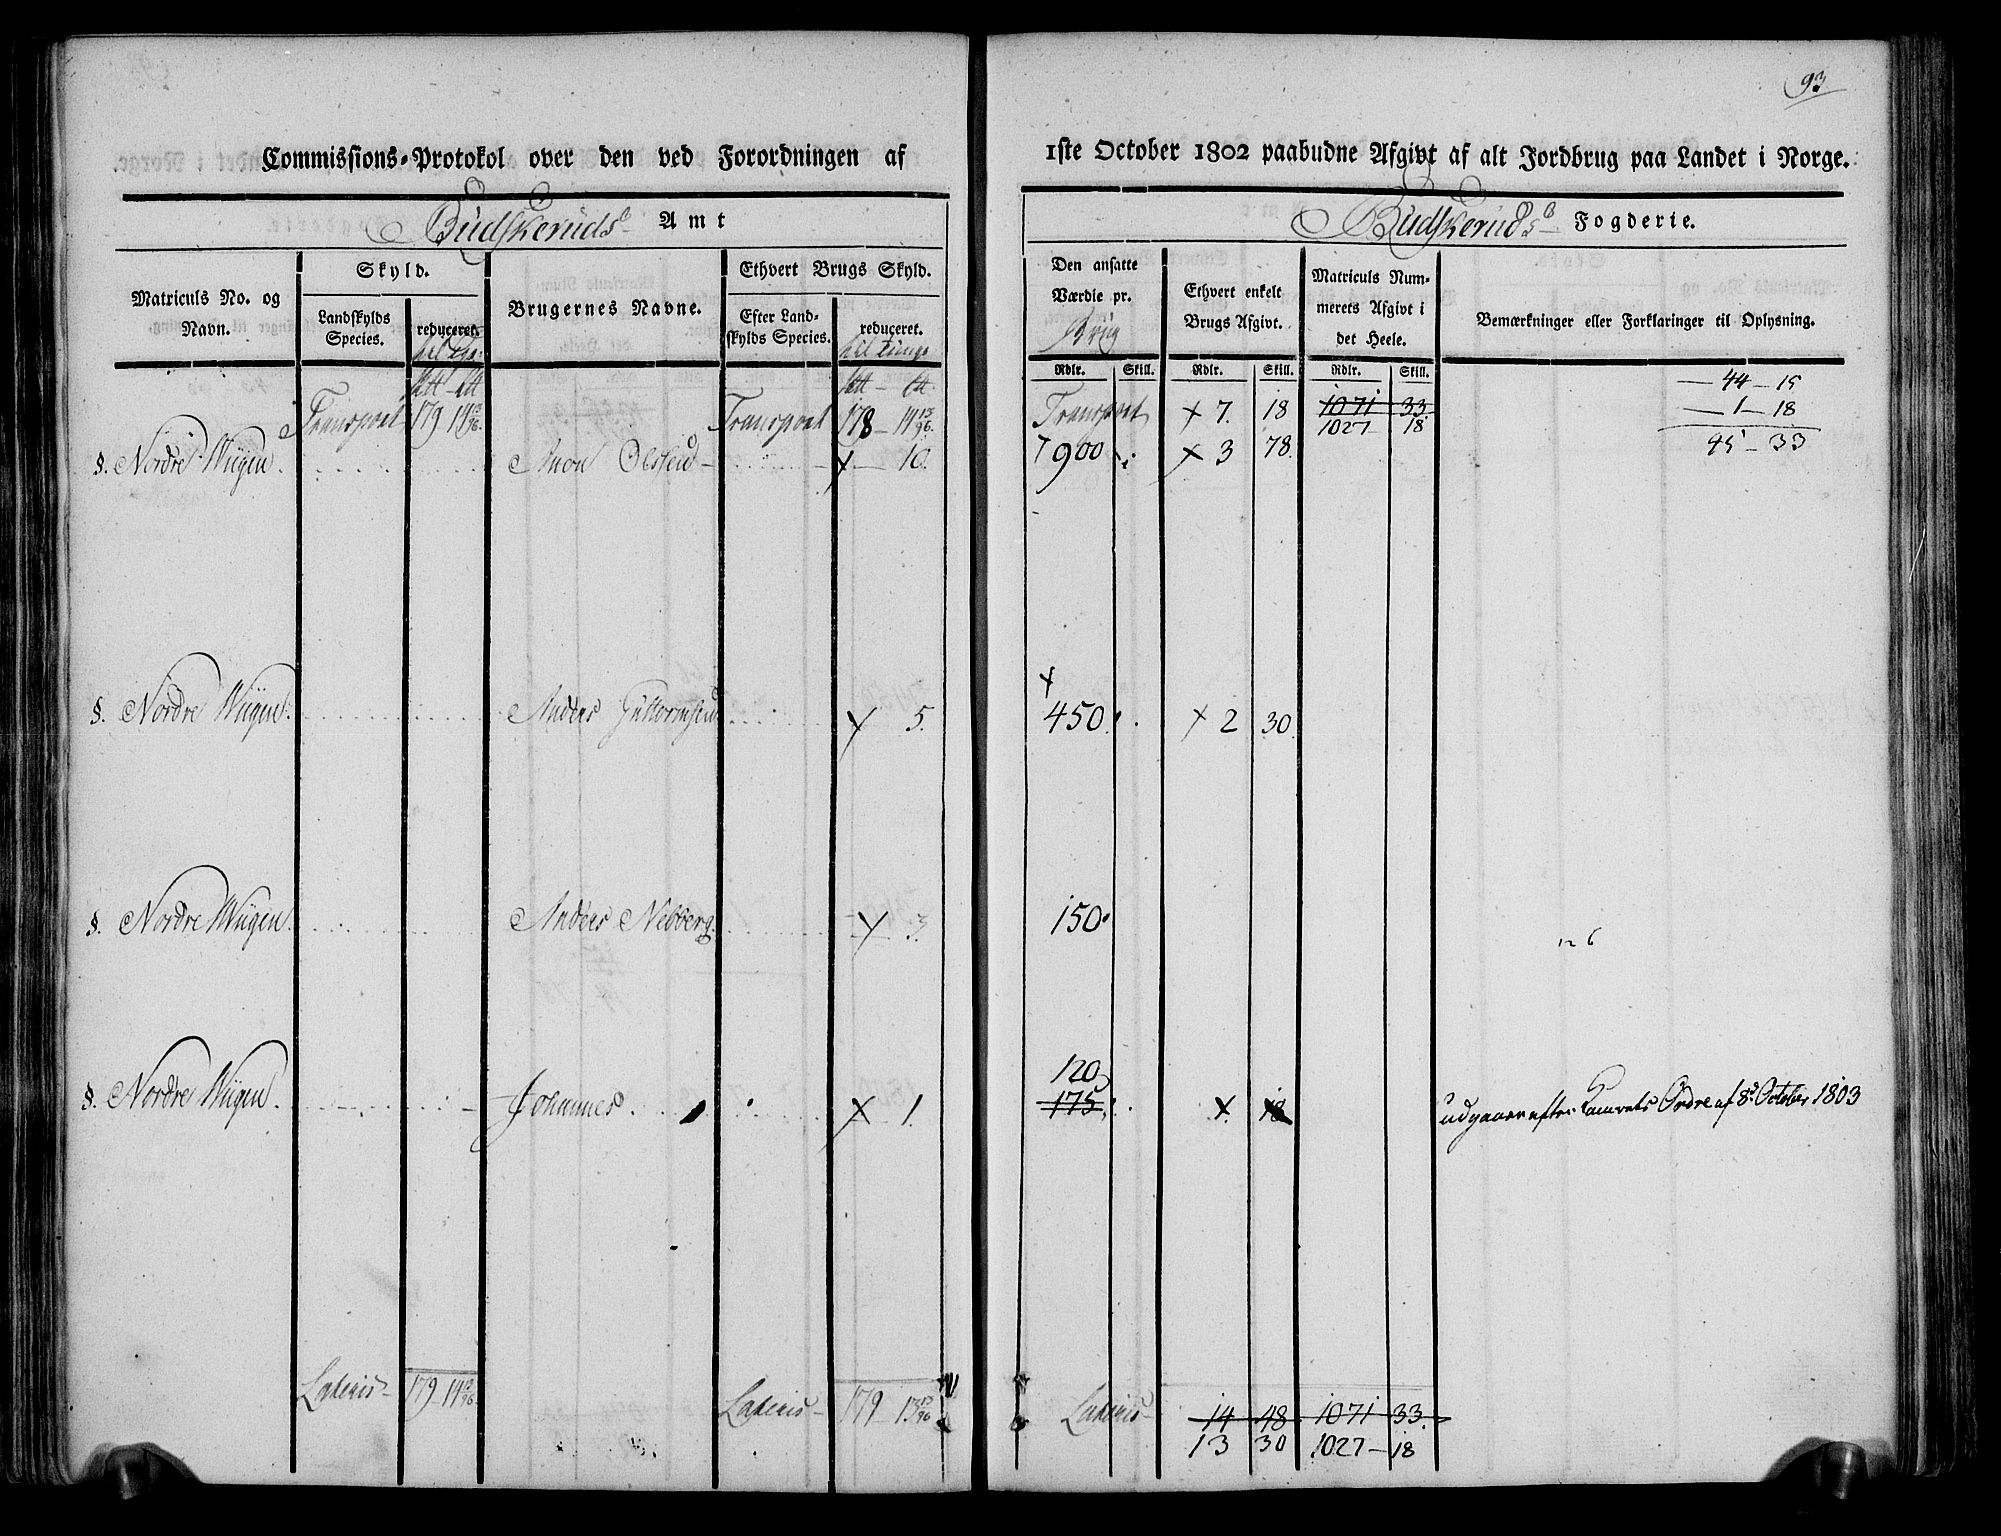 93
Commissions-Protokol over den ved Forordningen af
1ste October 1802 paabudne Afgivt af alt Jordbrug paa Landet i Norge.
Budskeruds Amt
Budskeruds Fogderie.
Matriculs No. og Navn.
Skyld.
Landskylds Species.
reduceret.
Brugernes Navne.
Ethvert Brugs Skyld.
Efter Landskylds Species.
reduceret.
til Tunge
Den ansatte Værdie pr. Brug
Ethvert enkelt Brugs Afgivt.
Matriculs Nummerets Afgivt i det Heele.
Bemærkninger eller Forklaringer til Oplysning.
Rdlr. Skill. Rdlr. Skill. Rdlr. Skill.
Transport 179 14 13/96 Transport 178 14 13/96 Transport 7. 18 1071 33.
1027 18
44 15
1 18
45 33
§. Nordre Wiigen Amon Olsen 10. 900 3 78.
§. Nordre Wiigen Anders Guttormsen 5. 450. 2 30.
§. Nordre Wiigen Anders Nebberg 3. 150.
12 6
120
§. Nordre Wiigen Johannes 1. 175 18 udgaaer efter Kamrets Ordre af 8de October 1803
Lateris 179 14 13/96 Lateris 179 13 13/96 Lateris 14 48 1071 33.
13 30 1027 18